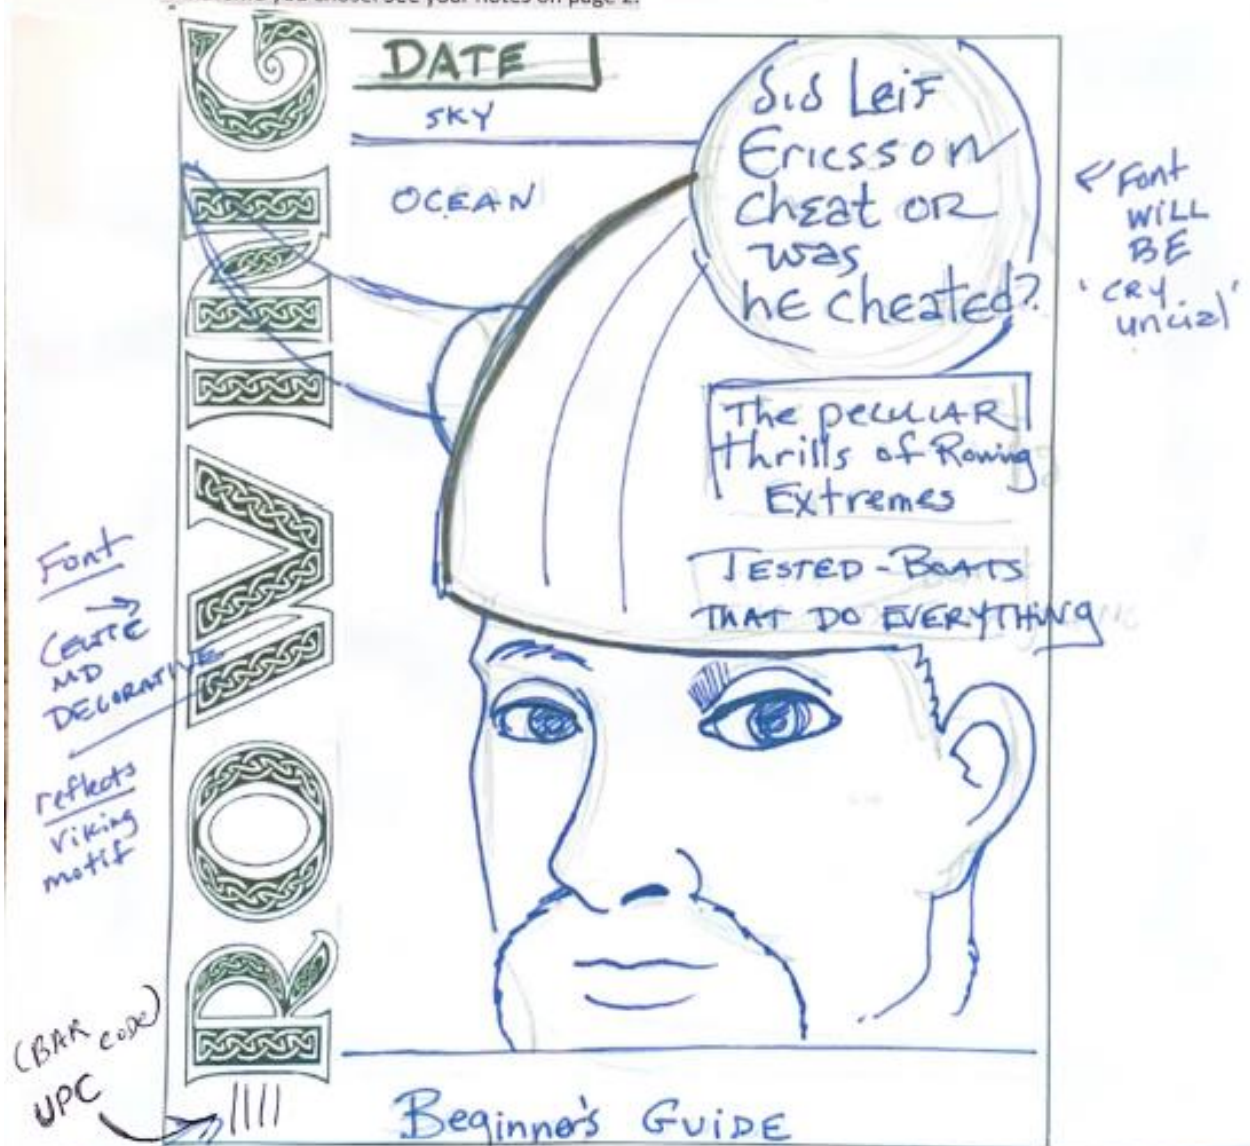 you chose. See your notes on page 2.
ROVING
DATE
SKY
OCEAN
Did Leif
Ericsson
cheat OR
was
he cheated?
Font
WILL
BE
'CRY
uncial'
The peculiar
thrills of Rowing
Extremes
TESTED - BOATS
THAT DO EVERYTHING
Font
CELTIC
MD
DECORATIVE
reflects
Viking
motif
(BAR code)
UPC
Beginner's GUIDE